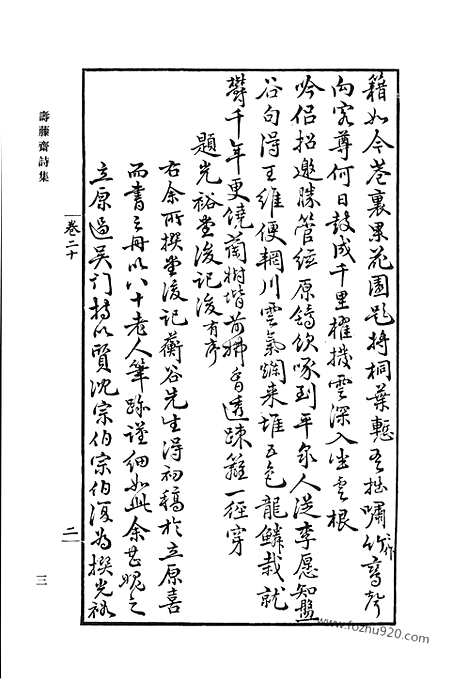 籍如今巷裏累花園題將桐葉慙吾拙嘯竹鸞聲
向客尊何日鼓成千里櫂機雲深入坐雲根
吟侶招邀勝管絃原鶴飲啄到平泉人從李愿知盤
谷句得王維便輞川雲氣爛來堆五色龍鱗栽就
欝千年更饒蘭樹堦前擁香遠疎籬一徑穿
題光裕堂後記後有序
右余所撰堂後記蘅谷先生得初稿於立原喜
而書之冊以八十老人筆跡謹細如此余甚愧之
立原過吳門持以贤沈宗伯宗伯復為撰光裕
壽藤齋詩集
卷二十
二
三
www.fozhu920.com